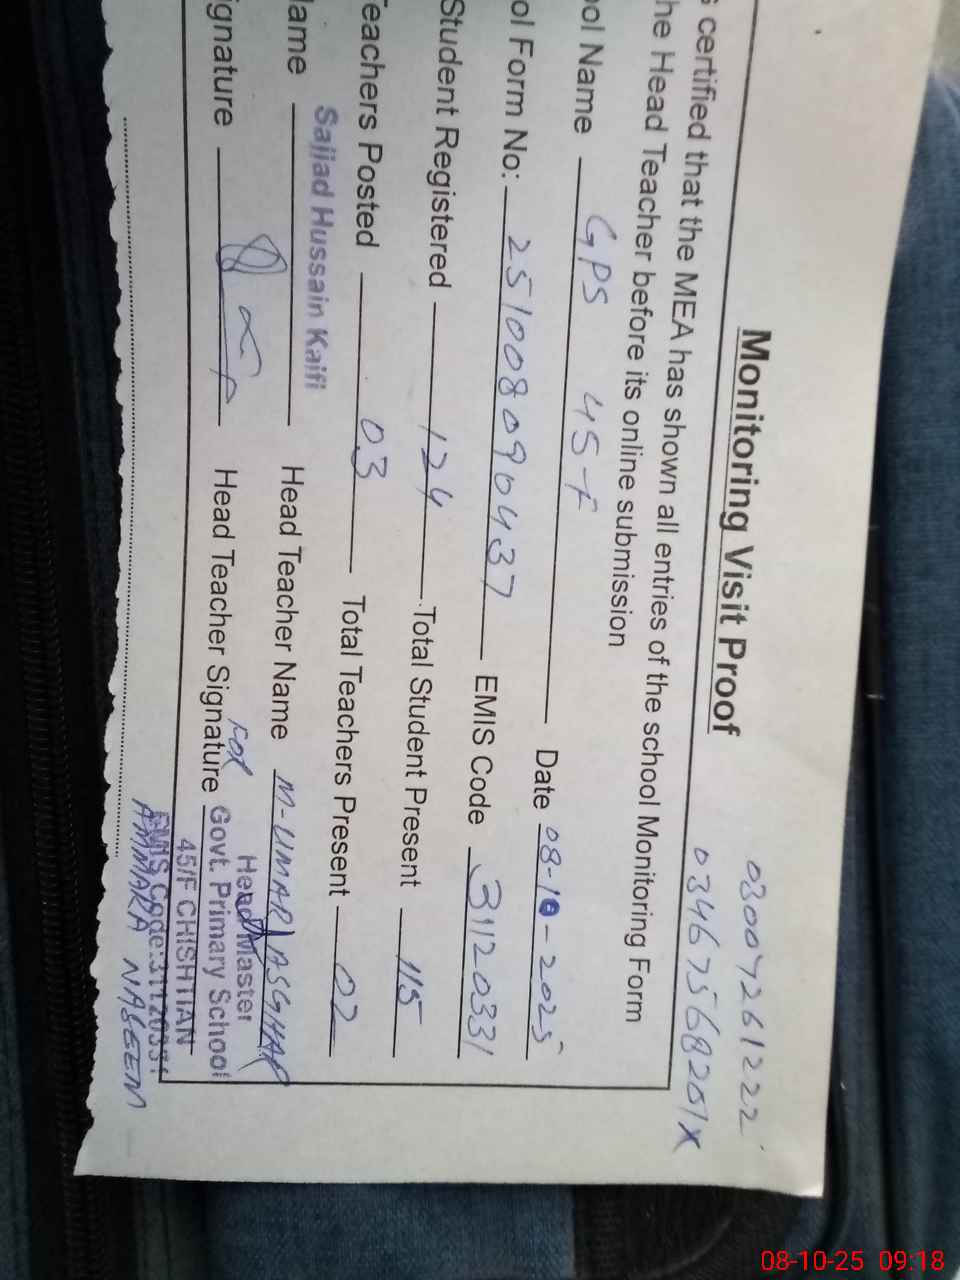 03007261222
Monitoring Visit Proof
03467568201X
certified that the MEA has shown all entries of the school Monitoring Form
he Head Teacher before its online submission
ool Name GPS 45-F Date 08-10-2025
ol Form No: 251008090437 EMIS Code 31120331
Student Registered 124 Total Student Present 115
Teachers Posted 03 Total Teachers Present 02
ame Sajjad Hussain Kaifi Head Teacher Name M-UMAR ASGHAR
ignature Head Teacher Signature
For Head Master
Govt. Primary School
45/F CHISHTIAN
EMIS Code:31120331
AMMARA NASEEM
08-10-25 09:18